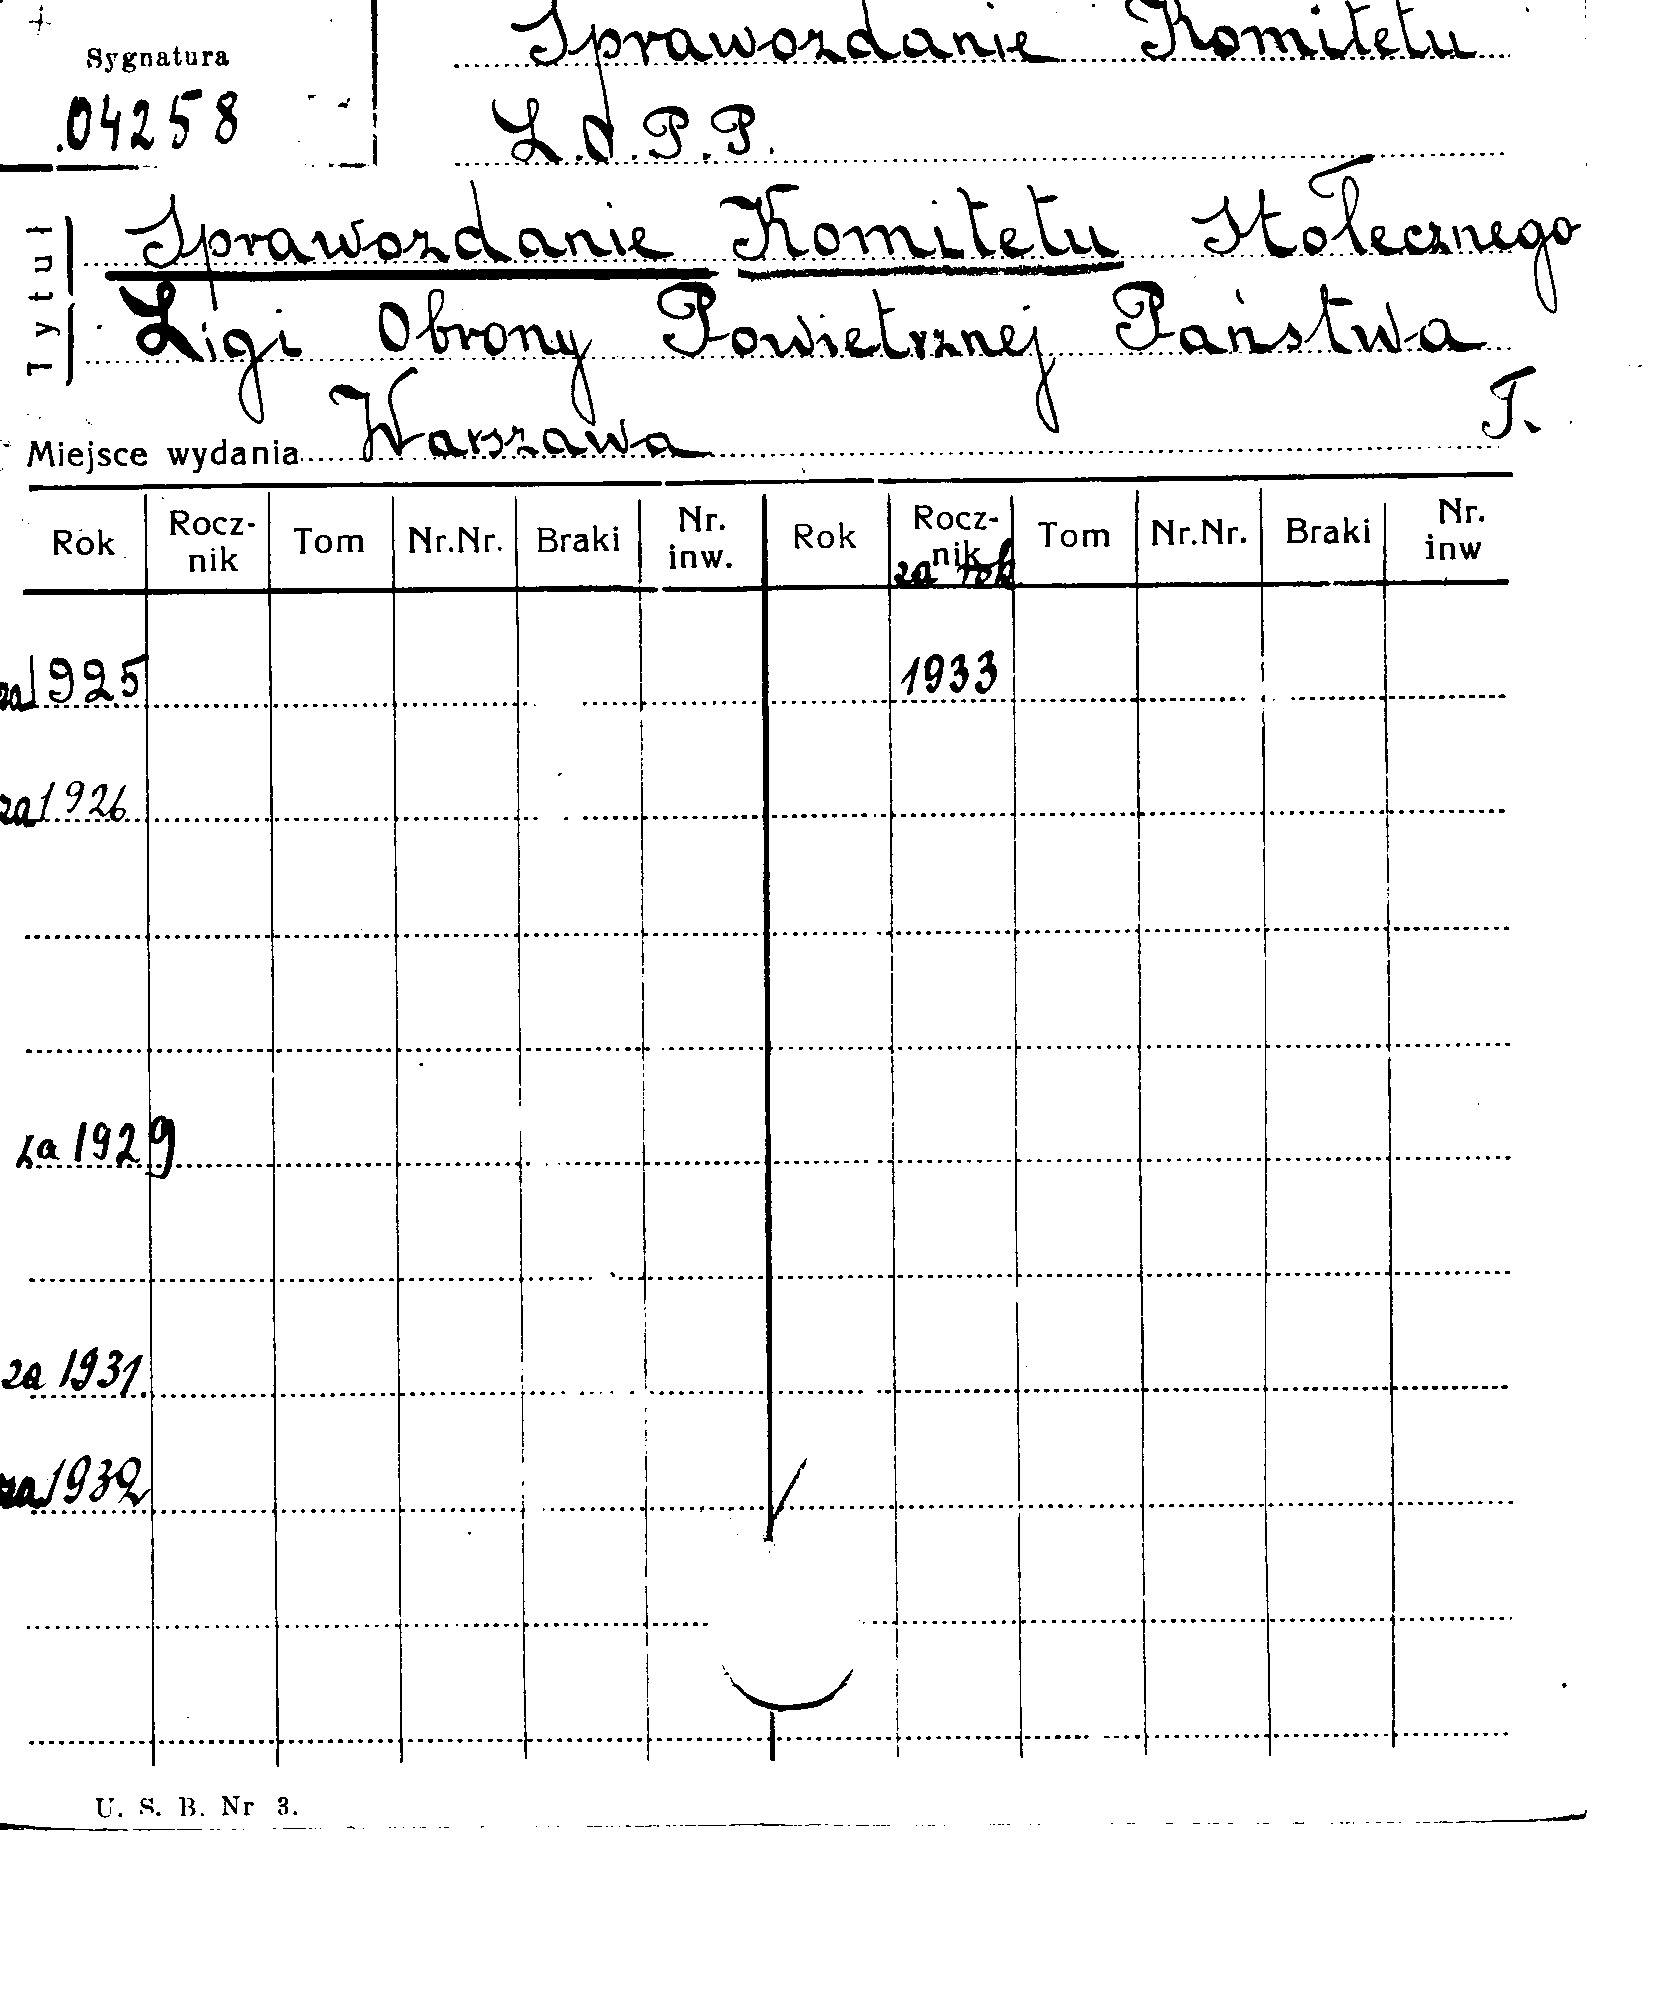 Sprawozdanie Komitetu
Sygnatura
04258
L.O.P.P.
Tytuł
Sprawozdanie Komitetu Stołecznego
Ligi Obrony Powietrznej Państwa
T.
Miejsce wydania Warszawa
Rok Rocz-nik Tom Nr.Nr. Braki Nr. inw. Rok Rocz-nik Tom Nr.Nr. Braki Nr. inw
za rok
za 1925 1933
za 1926
za 1929
za 1931
za 1932
U. S. B. Nr 3.